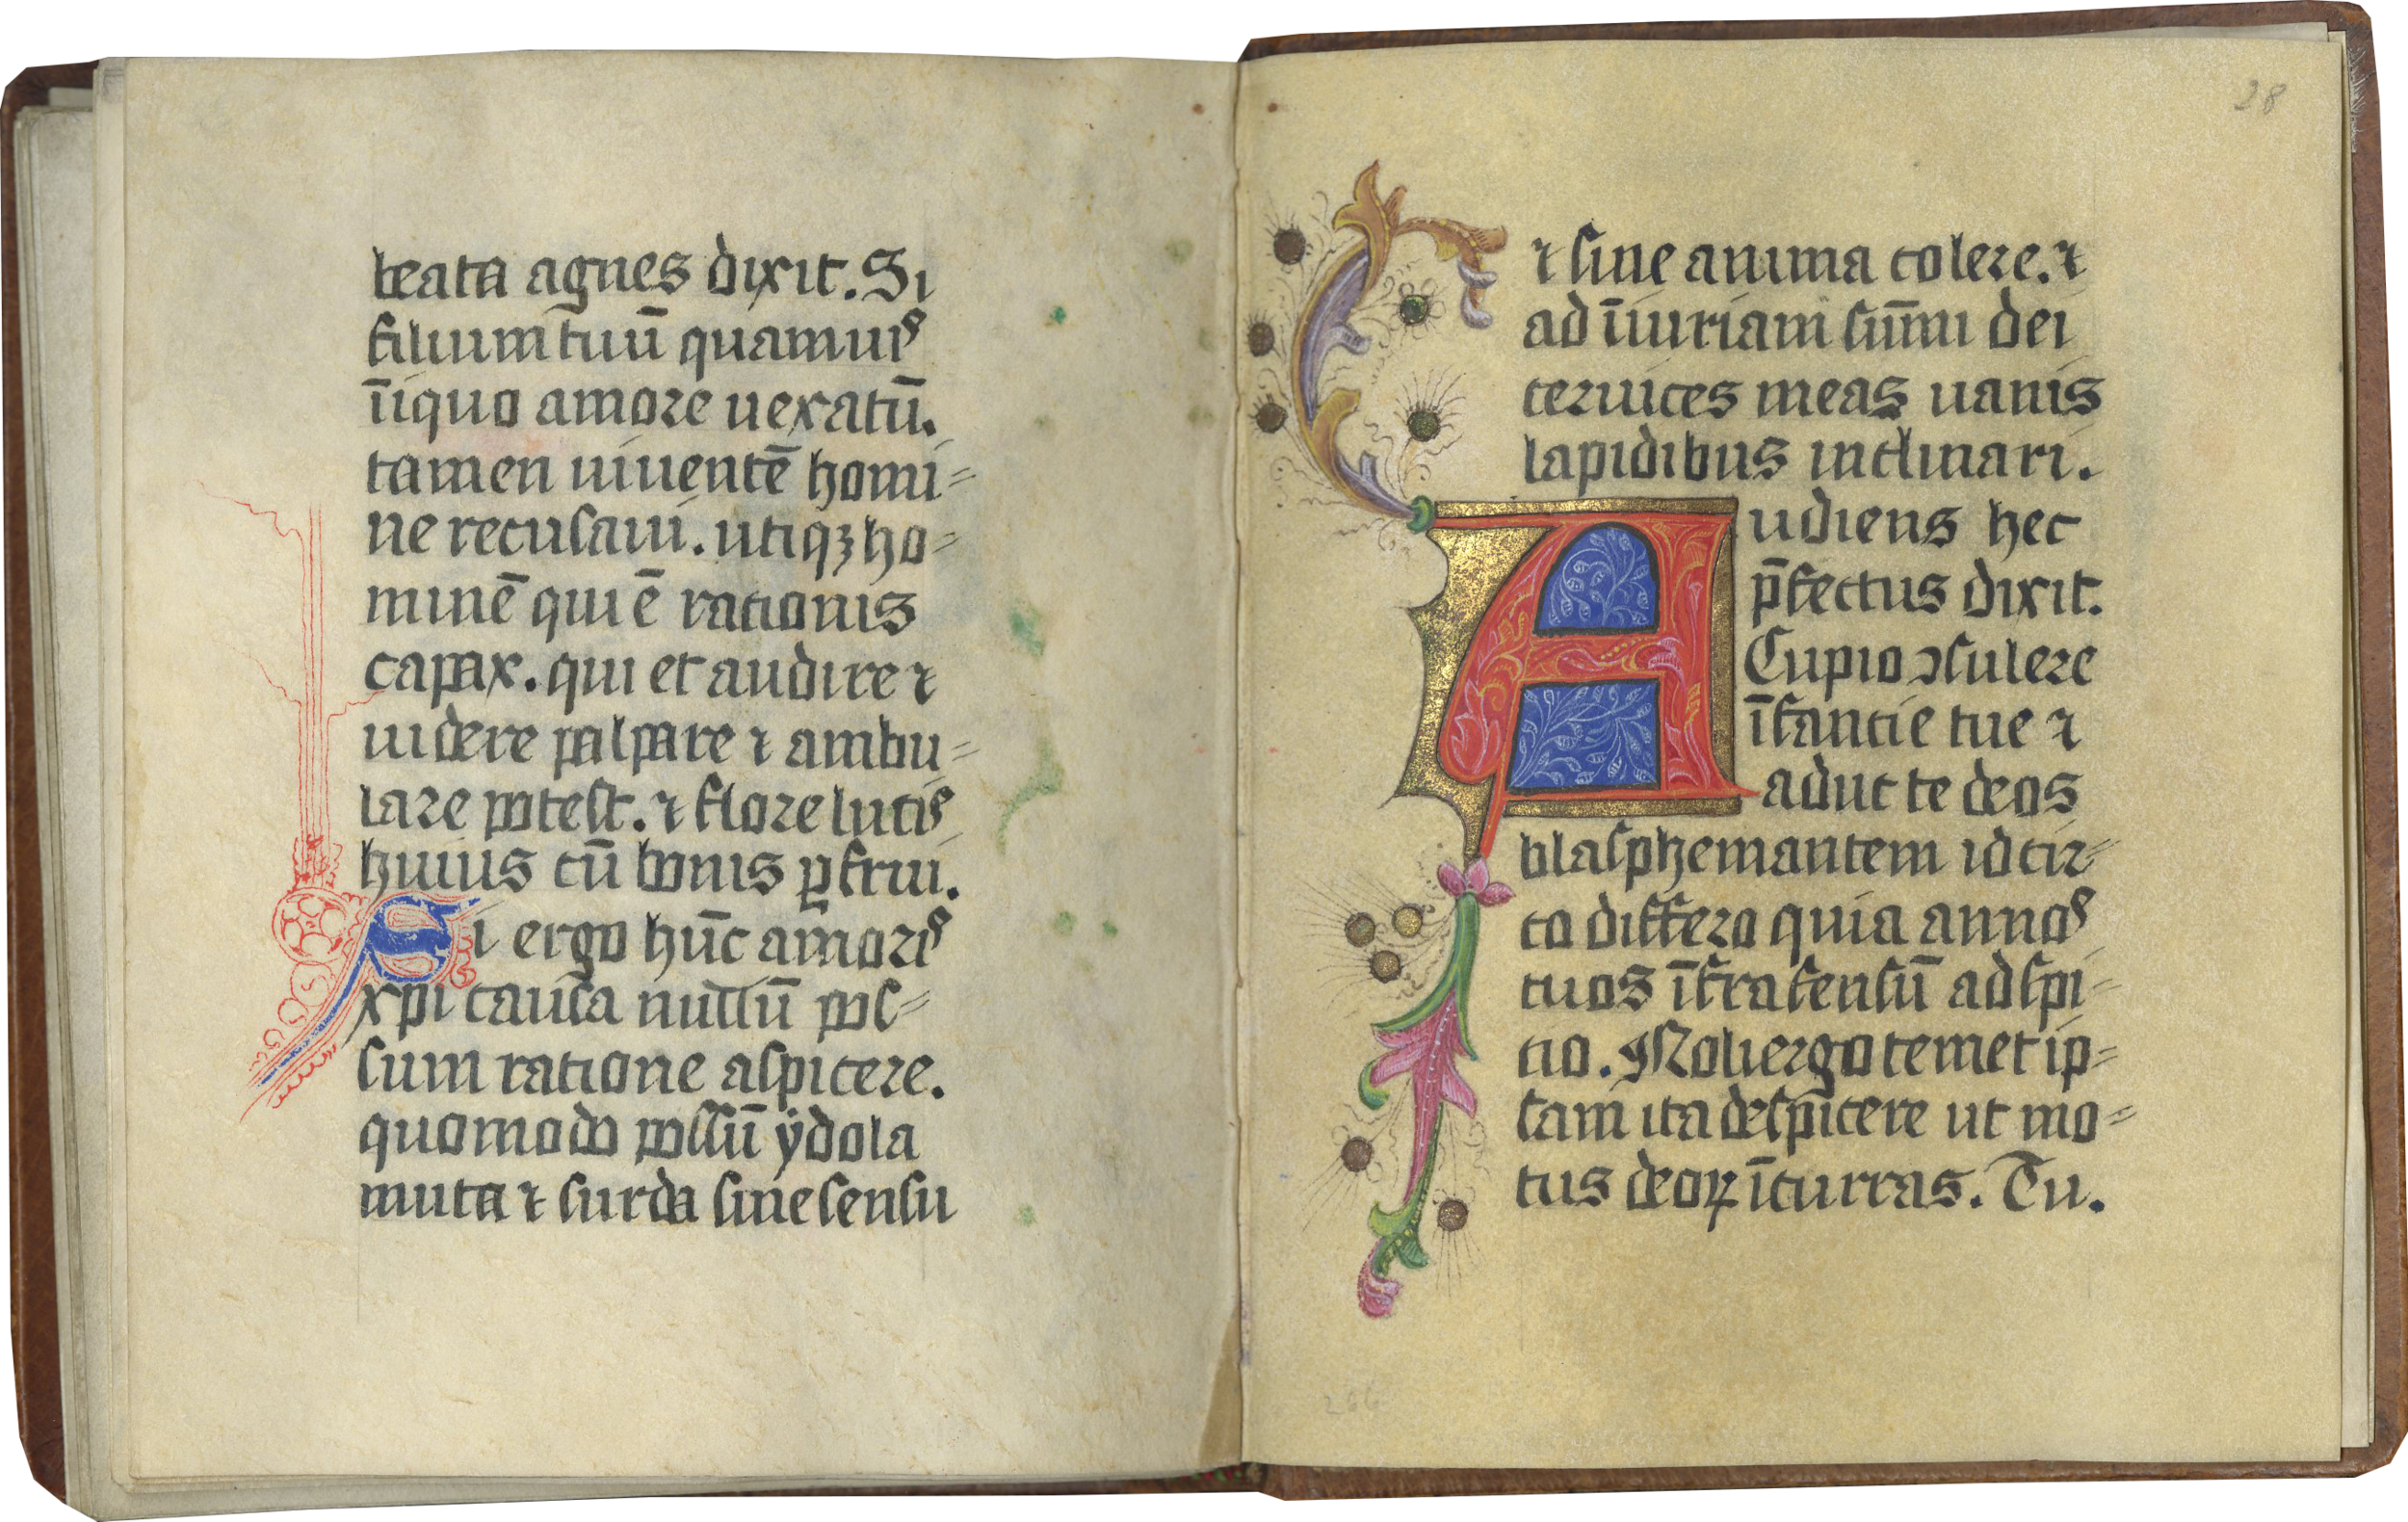 beata agnes dixit. Si
filium tuū quamuis
īiquo amore uexatū.
tamen uiuentē homi=
ne recusaui. utiqꝫ ho=
minē qui ē rationis
capax. qui et audire ⁊
uidere palpare ⁊ ambu=
lare potest. ⁊ flore lucis
huius cū bonis ꝑfrui.
Si ergo hūc amoris
xp̄i causa nullū pos=
sum ratione aspicere.
quomodo possū ydola
muta ⁊ surda sine sensu
28
⁊ sine anima colere. ⁊
ad īiuriam sūmi dei
ceruices meas uanis
lapidibus inclinari.
Audiens hec
p̄fectus dixit.
Cupio ꝯsulere
īfantie tue ⁊
adhuc te deos
blasphemantem idcir=
co differo quia annos
tuos īfra sensū adspi=
tio. Noli ergo temet ip=
sam ita despicere ut mo=
tus deoꝝ īcurras. Tu.